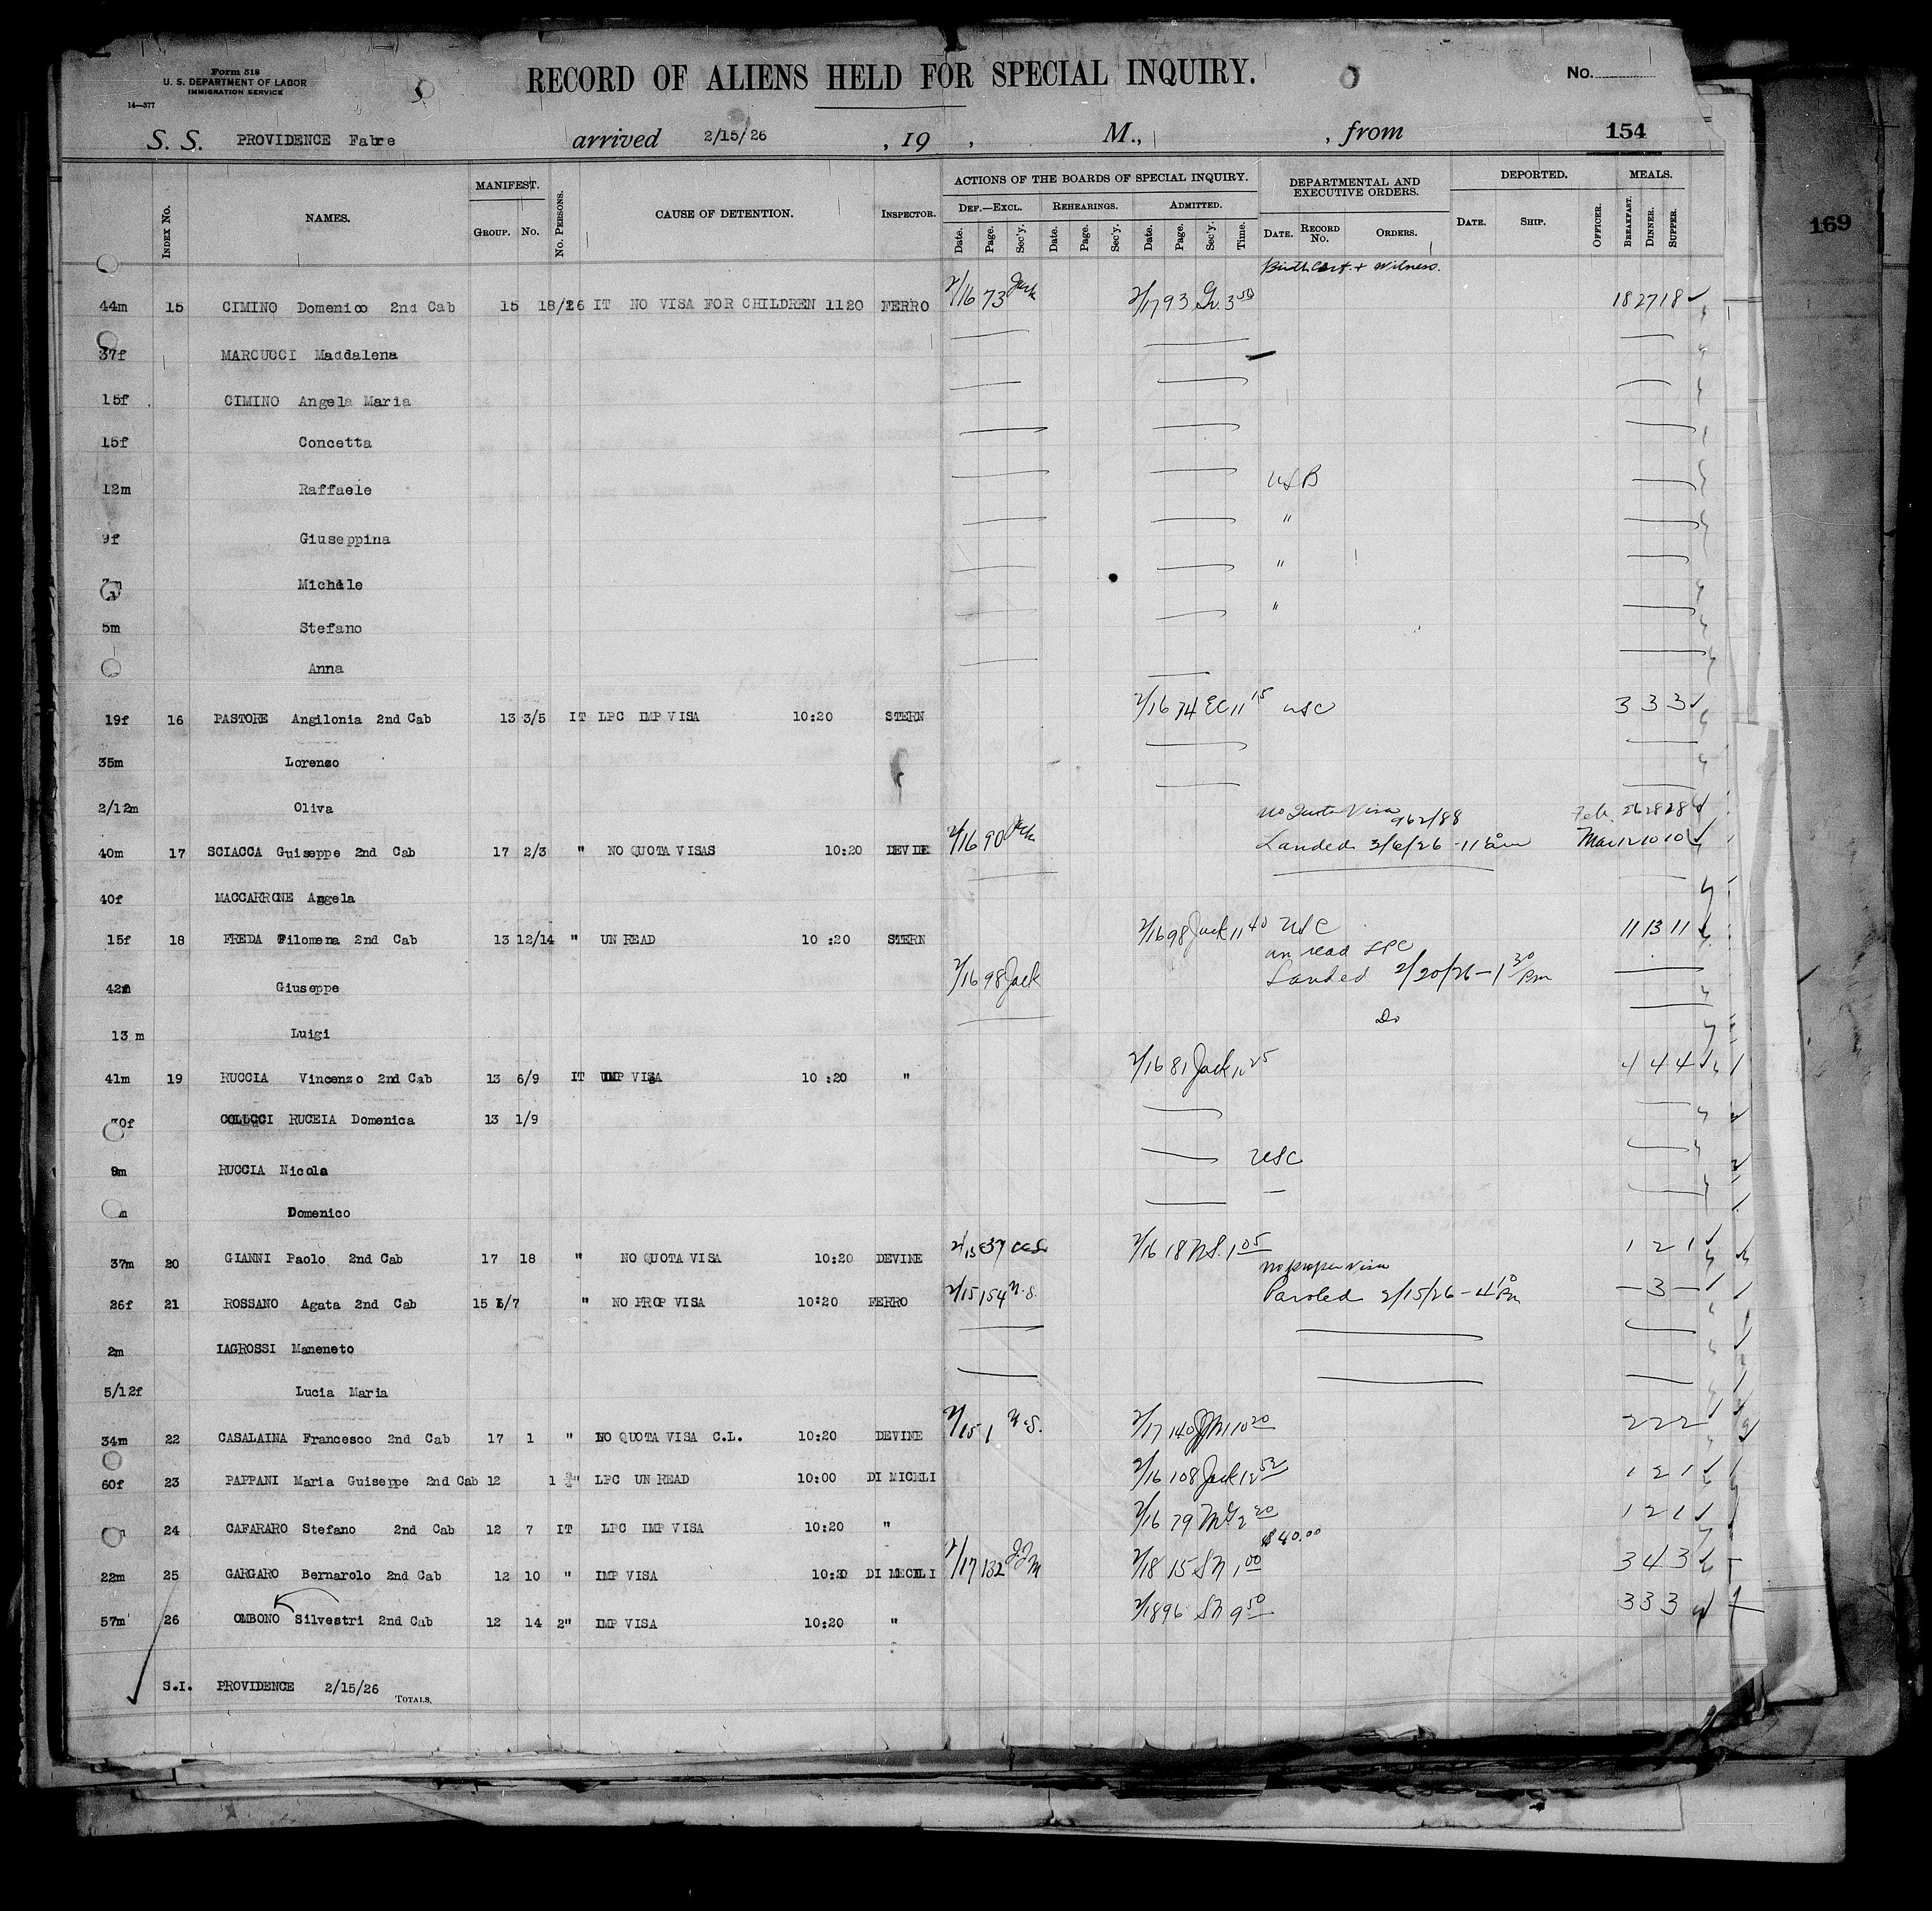 Form 518
U. S. DEPARTMENT OF LABOR
IMMIGRATION SERVICE
14—377
RECORD OF ALIENS HELD FOR SPECIAL INQUIRY.
No.
S. S. PROVIDENCE Fabre arrived 2/15/26 , 19 , M., , from 154
169
INDEX No. NAMES. MANIFEST. GROUP. NO. No. PERSONS. CAUSE OF DETENTION. INSPECTOR. ACTIONS OF THE BOARDS OF SPECIAL INQUIRY. DEPARTMENTAL AND EXECUTIVE ORDERS. DEPORTED. MEALS.
DEF.—EXCL. REHEARINGS. ADMITTED.
Date. Page. Sec'y. Date. Page. Sec'y. Date. Page. Sec'y. Time. DATE. RECORD No. ORDERS. DATE. SHIP. OFFICER. BREAKFAST. DINNER. SUPPER.
Birth Cert. + Witness.
44m 15 CIMINO Domenico 2nd Cab 15 18/26 IT NO VISA FOR CHILDREN 1120 FERRO 2/16 73 Jack 2/17 93 Gr. 3 50 18 27 18
37f MARCUCCI Maddalena
15f CIMINO Angela Maria
15f Concetta
12m Raffaele USB
9f Giuseppina "
7m Michele "
5m Stefano "
Anna
19f 16 PASTORE Angilonia 2nd Cab 13 3/5 IT LPC IMP VISA 10:20 STERN 2/16 74 EC 11 15 USC 3 3 3
35m Lorenzo
2/12m Oliva
No Quota Visa 962/88 Feb. 26 28 28
40m 17 SCIACCA Guiseppe 2nd Cab 17 2/3 " NO QUOTA VISAS 10:20 DEVINE 2/16 90 Jack Landed 3/6/26 - 11 am Mar 12 10 10
40f MACCARRONE Angela
15f 18 FREDA Filomena 2nd Cab 13 12/14 " UN READ 10:20 STERN 2/16 98 Jack 11 40 USC 11 13 11
un read LPC
42m Giuseppe 2/16 98 Jack Landed 2/20/26 - 1 30 Pm
13 m Luigi Do
41m 19 RUCCIA Vincenzo 2nd Cab 13 6/9 IT IMP VISA 10:20 " 2/16 81 Jack 11 25 4 4 4
30f COLUCCI RUCEIA Domenica 13 1/9
9m RUCCIA Nicola USC
m Domenico
37m 20 GIANNI Paolo 2nd Cab 17 18 " NO QUOTA VISA 10:20 DEVINE 2/15 2/16 18 N.S. 1 05 1 2 1
No proper Visa
26f 21 ROSSANO Agata 2nd Cab 15 5/7 " NO PROP VISA 10:20 FERRO 2/15 154 N.S. Paroled 2/15/26 - 4 10 Pm — 3 —
2m IAGROSSI Maneneto
5/12f Lucia Maria
34m 22 CASALAINA Francesco 2nd Cab 17 1 " NO QUOTA VISA C.L. 10:20 DEVINE 2/15 1 N.S. 2/17 140 10 20 2 2 2
60f 23 PAPPANI Maria Guiseppe 2nd Cab 12 1 " LPC UN READ 10:00 DI MICELI 2/16 108 Jack 12 52 1 2 1
24 CAFARARO Stefano 2nd Cab 12 7 IT LPC IMP VISA 10:20 " 2/16 79 McG 2 20 1 2 1
$40.00
22m 25 GARGARO Bernarolo 2nd Cab 12 10 " IMP VISA 10:20 DI MICELI 2/17 132 JJM 2/18 15 SN 1 00 3 4 3
57m 26 OMBONO Silvestri 2nd Cab 12 14 2" IMP VISA 10:20 " 2/18 96 SN 9 50 3 3 3
S.I. PROVIDENCE 2/15/26
TOTALS.